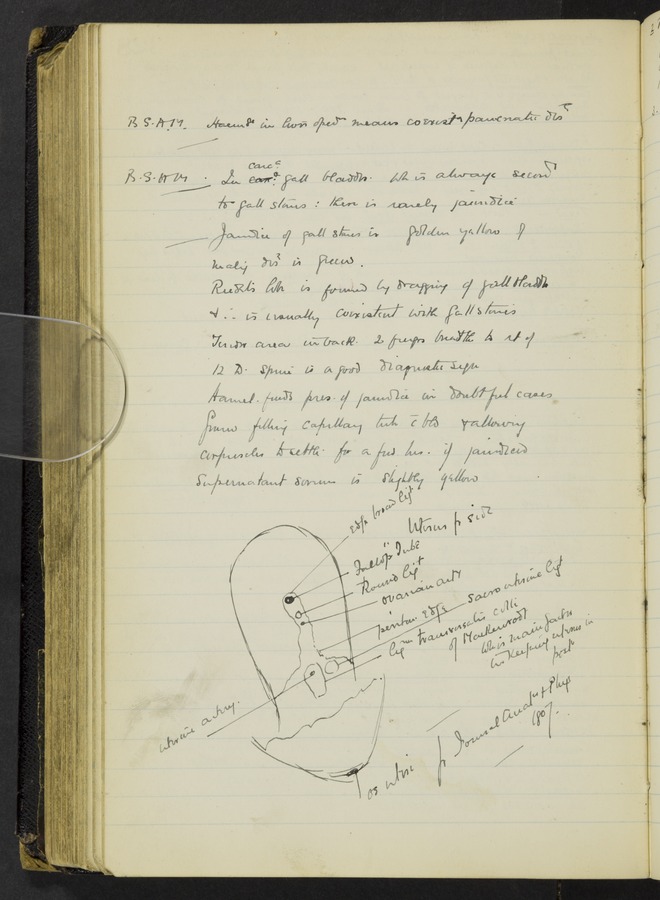 B.S.A.M. Haem in liver oped means coexist pancreatic dis
B.S.AM. In carc. gall bladder. Wh is always second
to gall stones: there is rarely jaundice
Jaundice of gall stones is golden yellow of
malig dis is green.
Riedel's lobe is formed by dragging of gall bladder
& ∴ is usually coexistent with gallstones
Tender area in back. 2 fingers breadth to rt of
12 D. Spine is a good diagnostic sign
Hamel. finds pres. of jaundice in doubtful cases
from filling capillary tube c bld & allowing
corpuscles to settle for a few hrs. if jaundiced
Supernatant serum is slightly yellow
edge broad ligt
Uterus fr side
Fallop Tube
Round ligt
ovarian arty
periton edge
Sacro uterine ligt
ligm transversalis colli
of Mackenrodt
wh is main factor
in keeping uterus in
post
uterine artery.
os uteri
fr Journal Anat & Phys
1807.